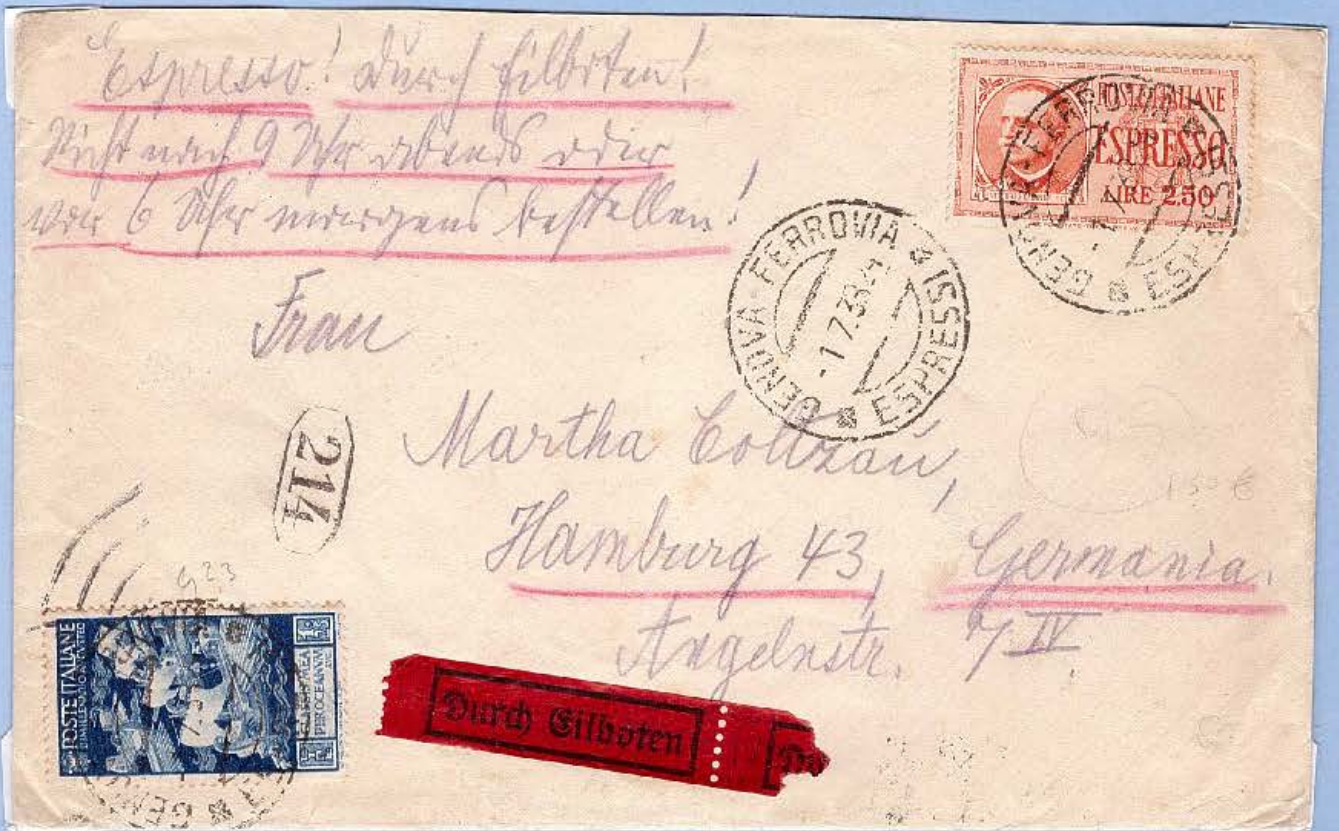 Espresso! Durch Eilboten!
Nicht nach 9 Uhr abends oder
vor 6 Uhr morgens bestellen!
POSTE ITALIANE
ESPRESSO
LIRE 2.50
GENOVA-FERROVIA
ESPRESSI
-1.7.38
GENOVA-FERROVIA
ESPRESSI
Frau
Martha Coltzau,
Hamburg 43, Germania.
7/IV
214
923
POSTE ITALIANE
PER OCEANVM
Durch Eilboten
Du